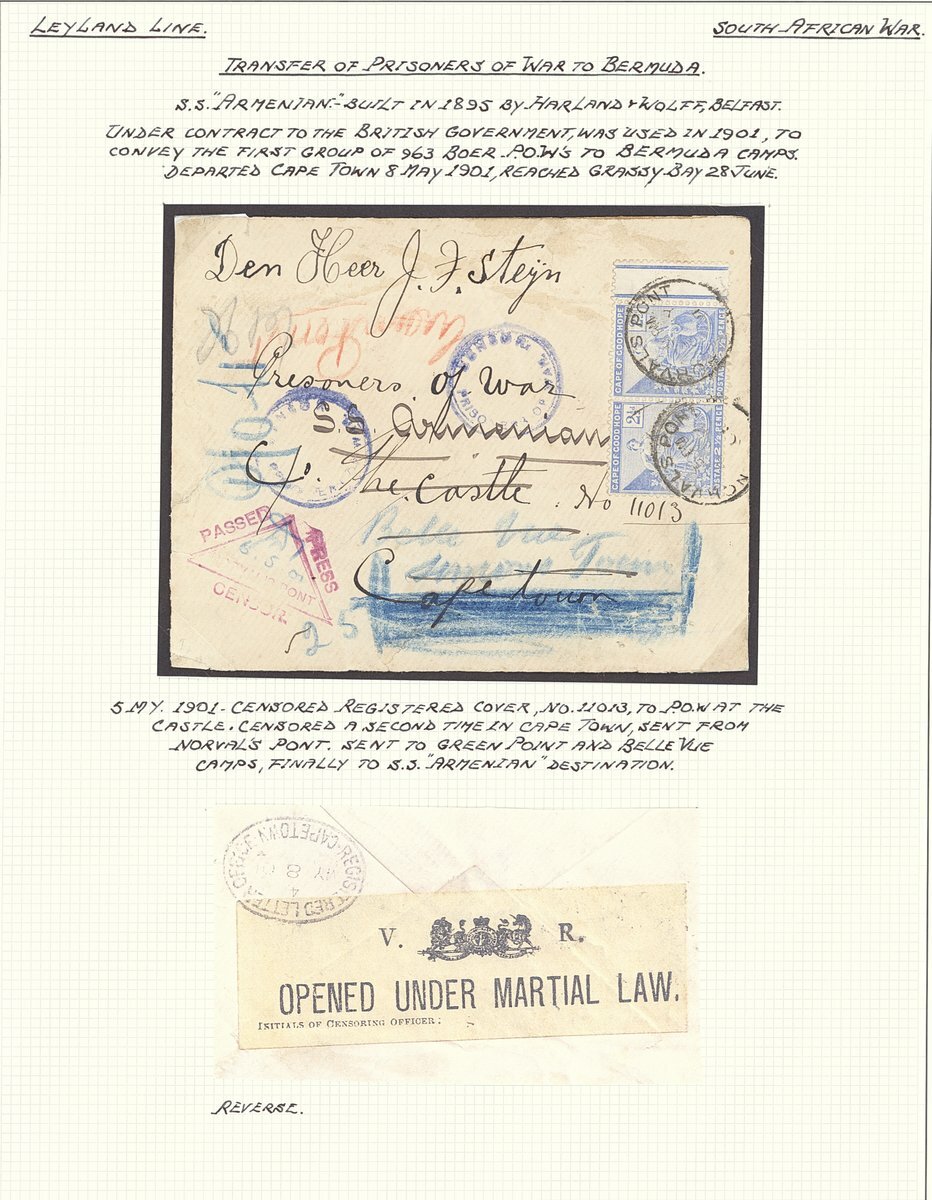 LEYLAND LINE.
SOUTH AFRICAN WAR.
TRANSFER OF PRISONERS OF WAR TO BERMUDA.
S.S. "ARMENIAN" - BUILT IN 1895 BY HARLAND & WOLFF, BELFAST.
UNDER CONTRACT TO THE BRITISH GOVERNMENT, WAS USED IN 1901, TO
CONVEY THE FIRST GROUP OF 963 BOER P.O.W'S TO BERMUDA CAMPS.
DEPARTED CAPE TOWN 8 MAY 1901, REACHED GRASSY BAY 28 JUNE.
Den Heer J. F. Steyn
Presoners of War
SS Armenian
C/o The Castle
No 11013
Belle Vue
Simons Town
Cape town
CAPE OF GOOD HOPE
POSTAGE 2½ PENCE
CAPE OF GOOD HOPE
POSTAGE 2½ PENCE
NORVALS PONT
NORVALS PONT
PASSED
PRESS
CENSOR
PONT
25
5 MY. 1901 - CENSORED REGISTERED COVER, NO. 11013, TO P.O.W AT THE
CASTLE. CENSORED A SECOND TIME IN CAPE TOWN, SENT FROM
NORVAL'S PONT. SENT TO GREEN POINT AND BELLE VUE
CAMPS, FINALLY TO S.S. "ARMENIAN" DESTINATION.
REGISTERED LETTER OFFICE · CAPETOWN
4
MY 8
V. R.
OPENED UNDER MARTIAL LAW.
INITIALS OF CENSORING OFFICER:
REVERSE.